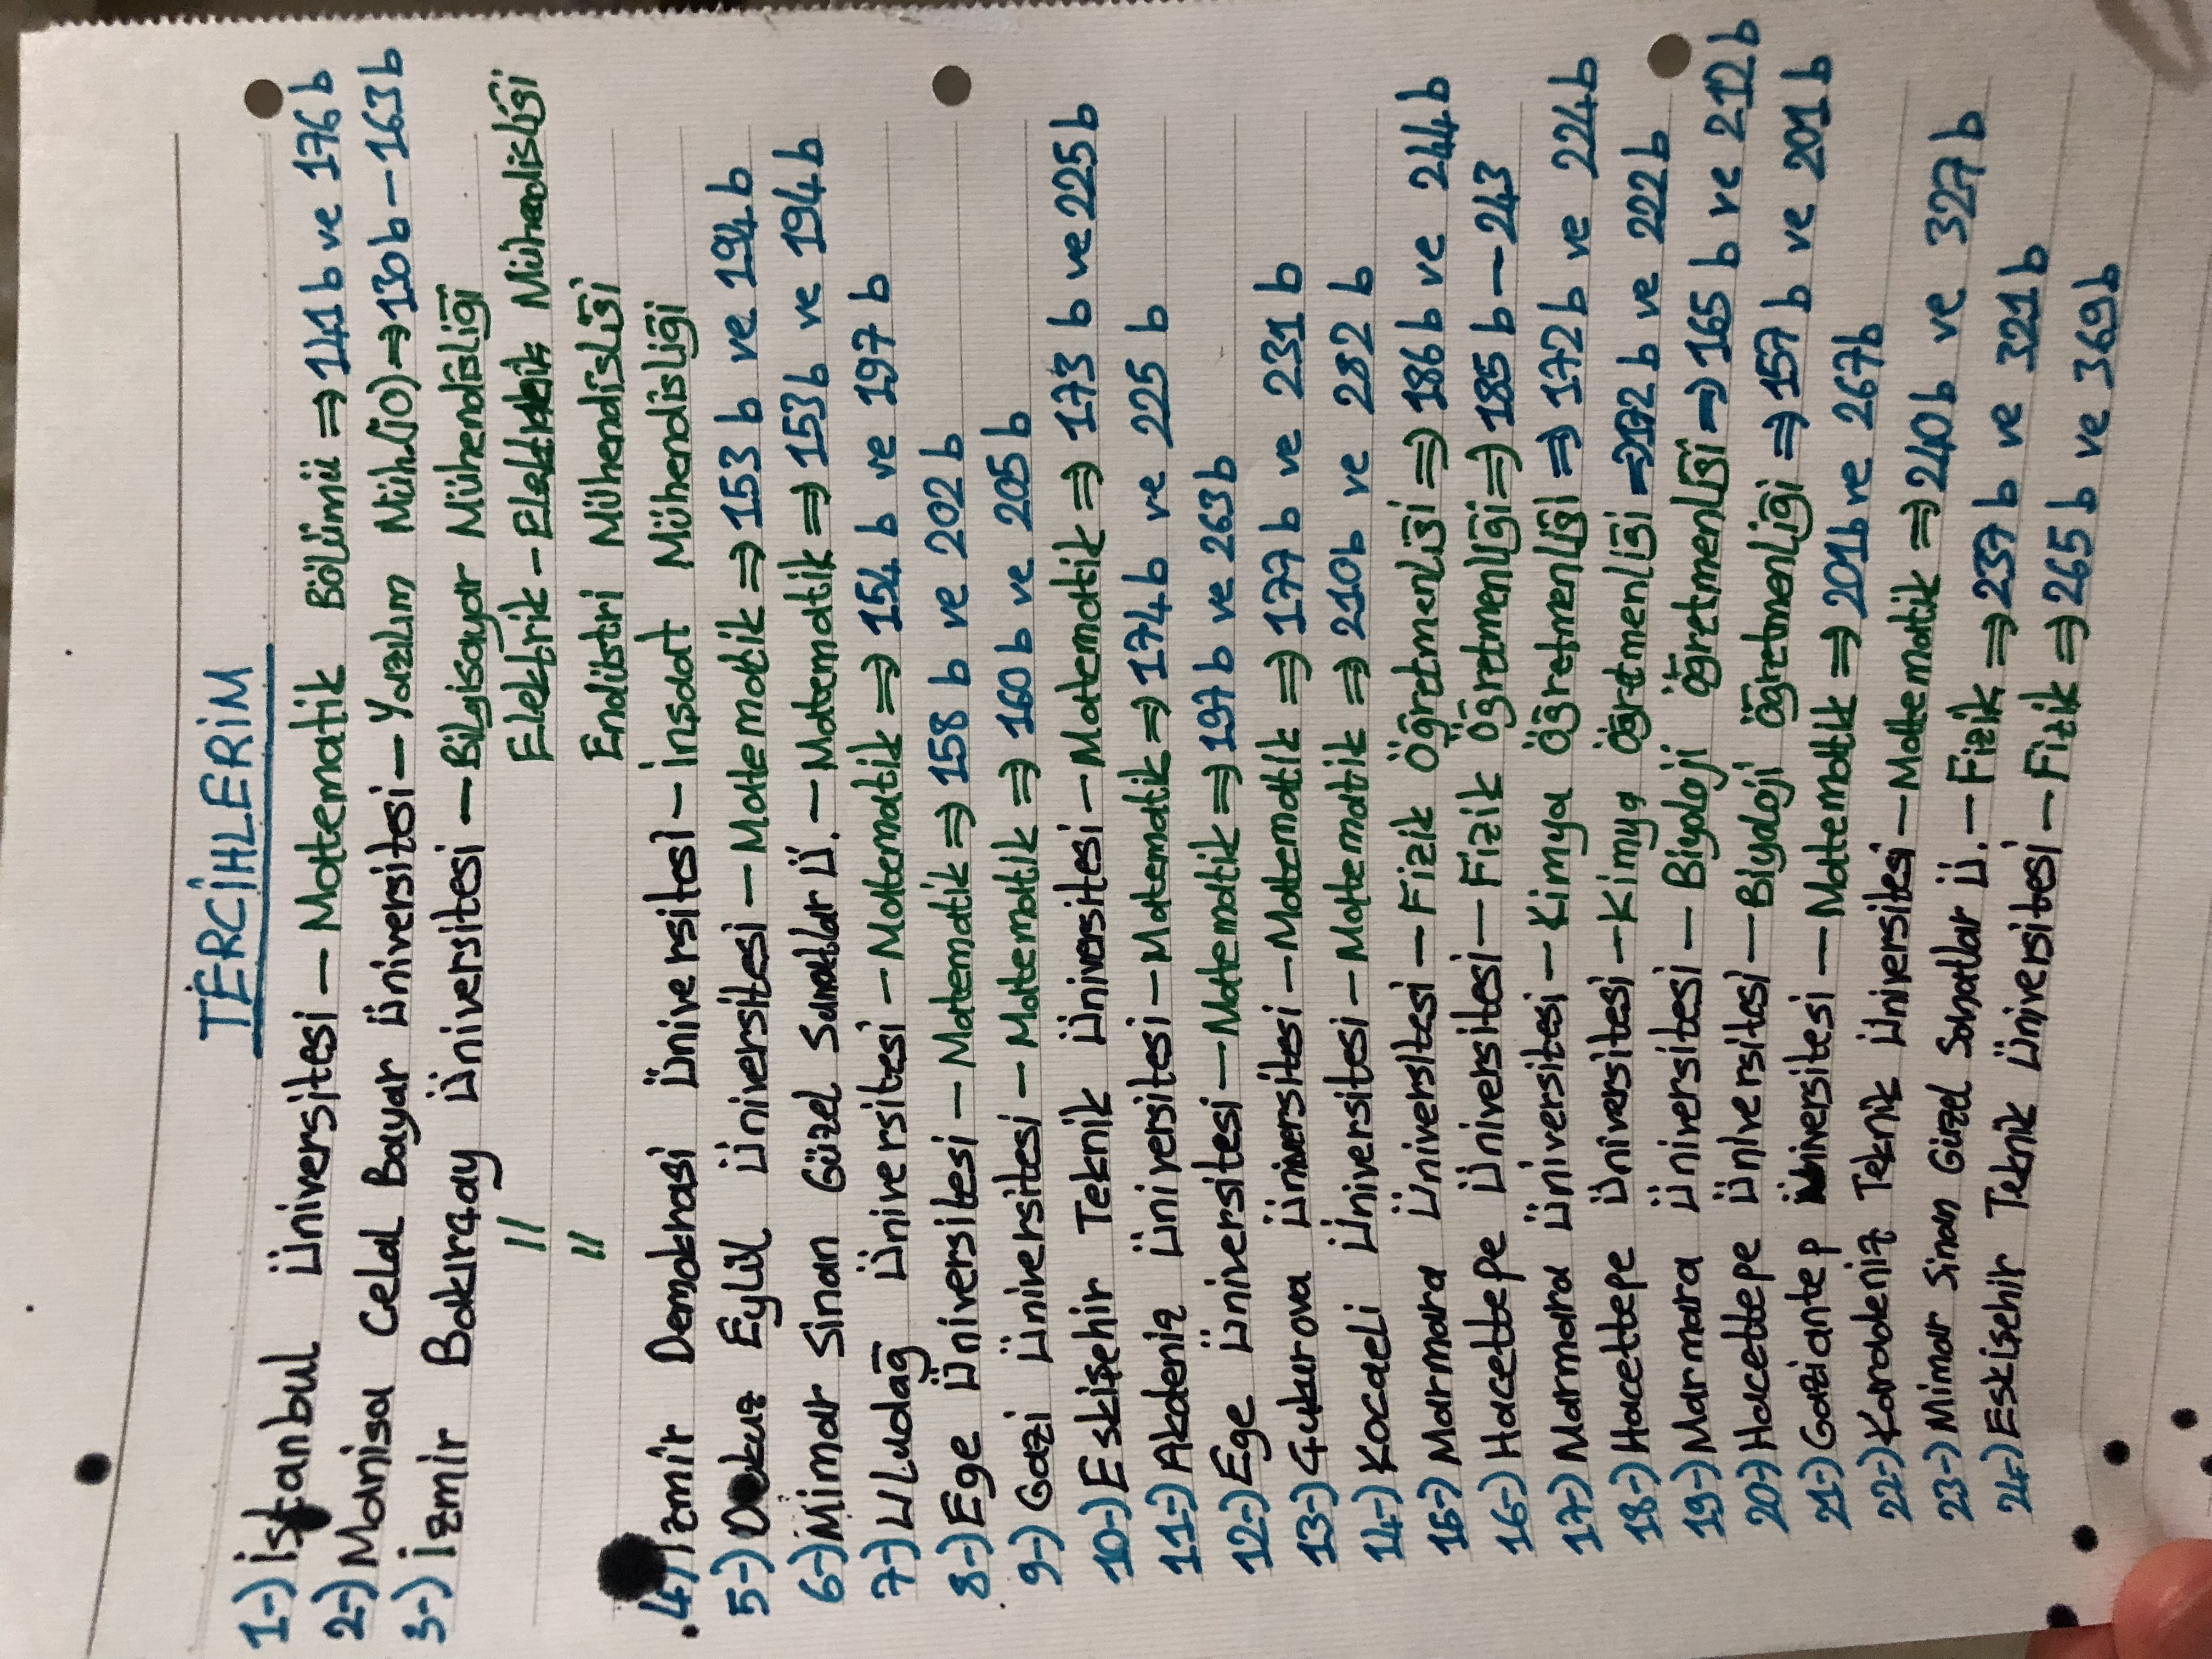 TERCİHLERİM
1-) İstanbul Üniversitesi — Matematik Bölümü ⇒ 141 b ve 176 b
2-) Manisa Celal Bayar Üniversitesi — Yazılım Müh.(İÖ) ⇒ 130 b — 163 b
3-) İzmir Bakırçay Üniversitesi — Bilgisayar Mühendisliği
" Elektrik - Elektronik Mühendisliği
" Endüstri Mühendisliği
4-) İzmir Demokrasi Üniversitesi — İnşaat Mühendisliği
5-) Dokuz Eylül Üniversitesi — Matematik ⇒ 153 b ve 194 b
6-) Mimar Sinan Güzel Sanatlar Ü. — Matematik ⇒ 153 b ve 194 b
7-) Uludağ Üniversitesi — Matematik ⇒ 154 b ve 197 b
8-) Ege Üniversitesi — Matematik ⇒ 158 b ve 202 b
9-) Gazi Üniversitesi — Matematik ⇒ 160 b ve 205 b
10-) Eskişehir Teknik Üniversitesi — Matematik ⇒ 173 b ve 225 b
11-) Akdeniz Üniversitesi — Matematik ⇒ 174 b ve 225 b
12-) Ege Üniversitesi — Matematik ⇒ 197 b ve 263 b
13-) Çukurova Üniversitesi — Matematik ⇒ 177 b ve 231 b
14-) Kocaeli Üniversitesi — Matematik ⇒ 210 b ve 282 b
15-) Marmara Üniversitesi — Fizik Öğretmenliği ⇒ 186 b ve 244 b
16-) Hacettepe Üniversitesi — Fizik Öğretmenliği ⇒ 185 b — 243
17-) Marmara Üniversitesi — Kimya Öğretmenliği ⇒ 172 b ve 224 b
18-) Hacettepe Üniversitesi — Kimya Öğretmenliği ⇒ 172 b ve 222 b
19-) Marmara Üniversitesi — Biyoloji öğretmenliği ⇒ 165 b ve 212 b
20-) Hacettepe Üniversitesi — Biyoloji Öğretmenliği ⇒ 157 b ve 201 b
21-) Gaziantep Üniversitesi — Matematik ⇒ 201 b ve 267 b
22-) Karadeniz Teknik Üniversitesi — Matematik ⇒ 240 b ve 327 b
23-) Mimar Sinan Güzel Sanatlar Ü. — Fizik ⇒ 237 b ve 321 b
24-) Eskişehir Teknik Üniversitesi — Fizik ⇒ 265 b ve 369 b